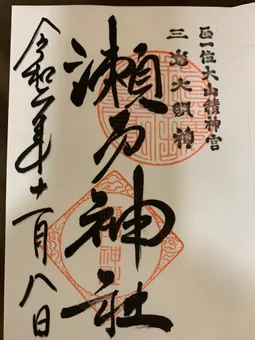 正一位大山積神宮
三島大明神
瀬方神社
令和二年十一月八日